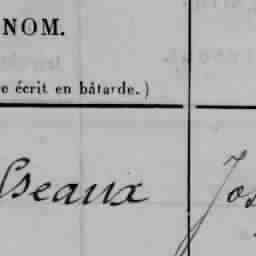 NOM.
e écrit en bâtarde.)
seaux Jos